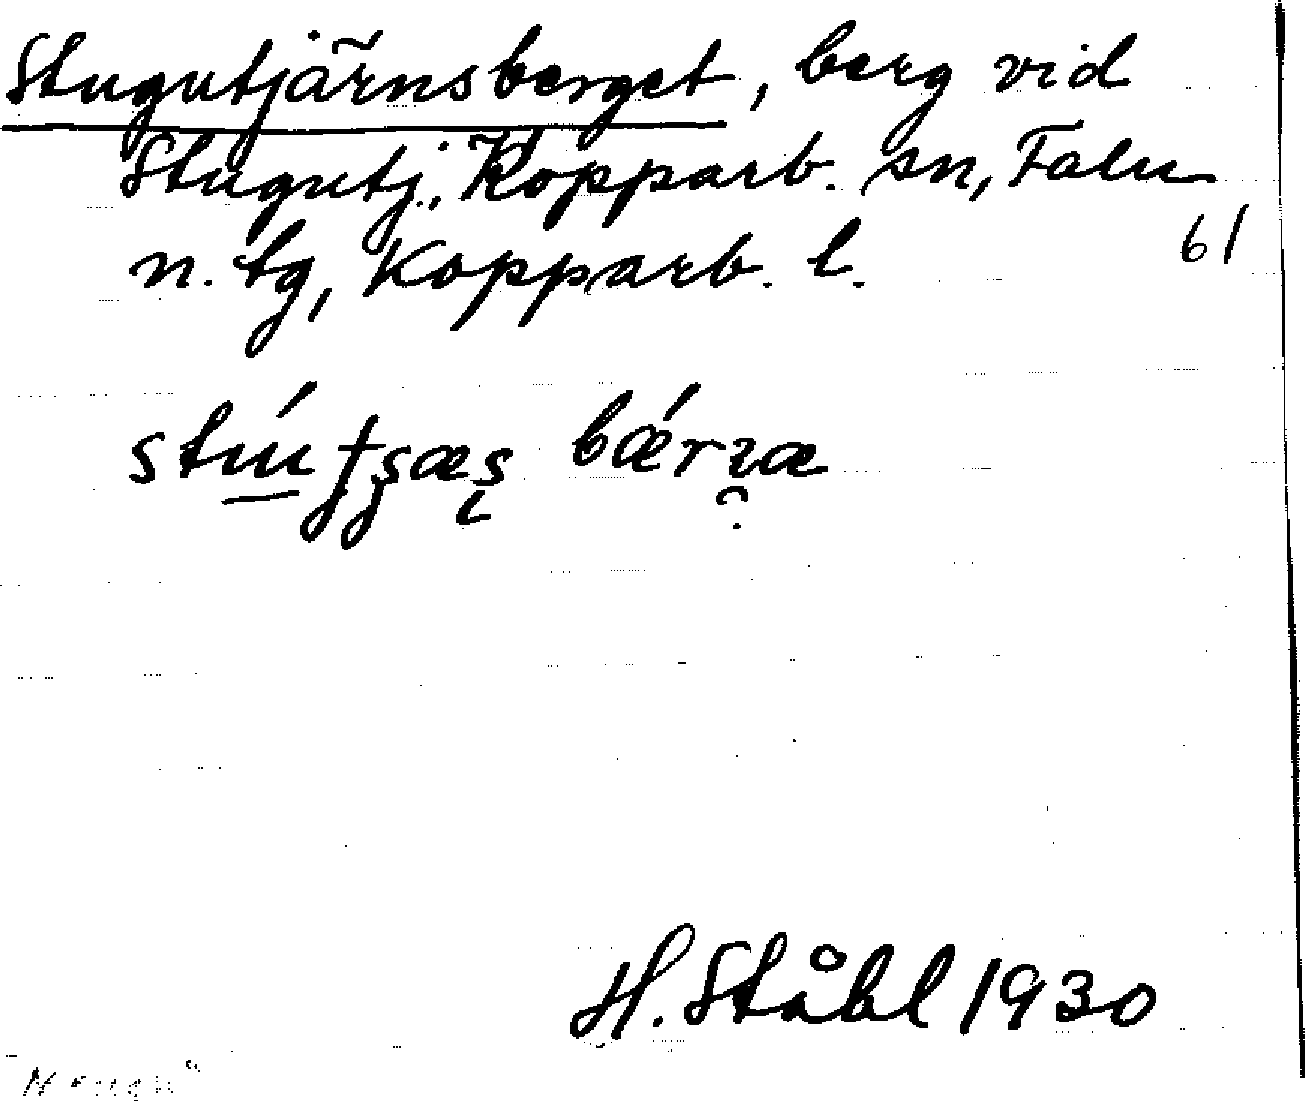 Stugutjärnsberget, berg vid
Stugutj., Kopparb. sn, Falu
n. tg, Kopparb. l.
61
H. Ståhl 1930